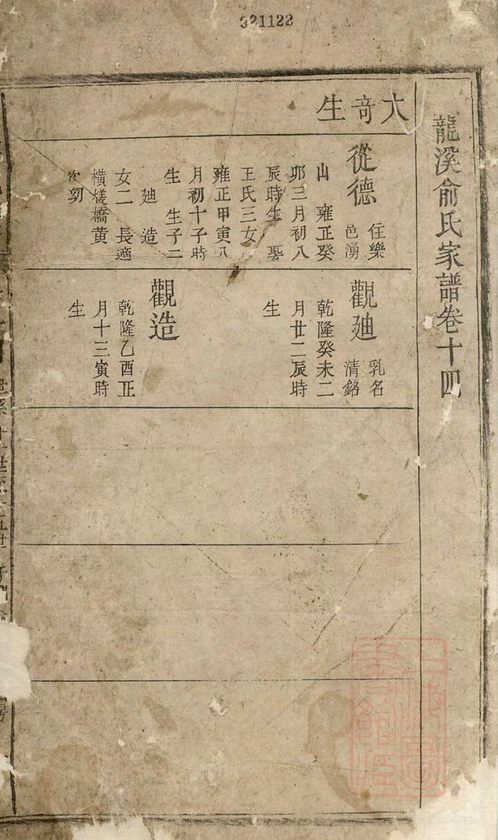 321122
龍溪俞氏家譜卷十四
大竒生
從德
住樂
邑湧
山 雍正癸
卯三月初八
辰時生 娶
王氏三女
雍正甲寅八
月初十子時
生 生子二
廸 造
女二 長適
橫槎橋黃
次㓜
觀廸
乳名
清銘
乾隆癸未二
月廿二辰時
生
觀造
乾隆乙酉正
月十三寅時
生